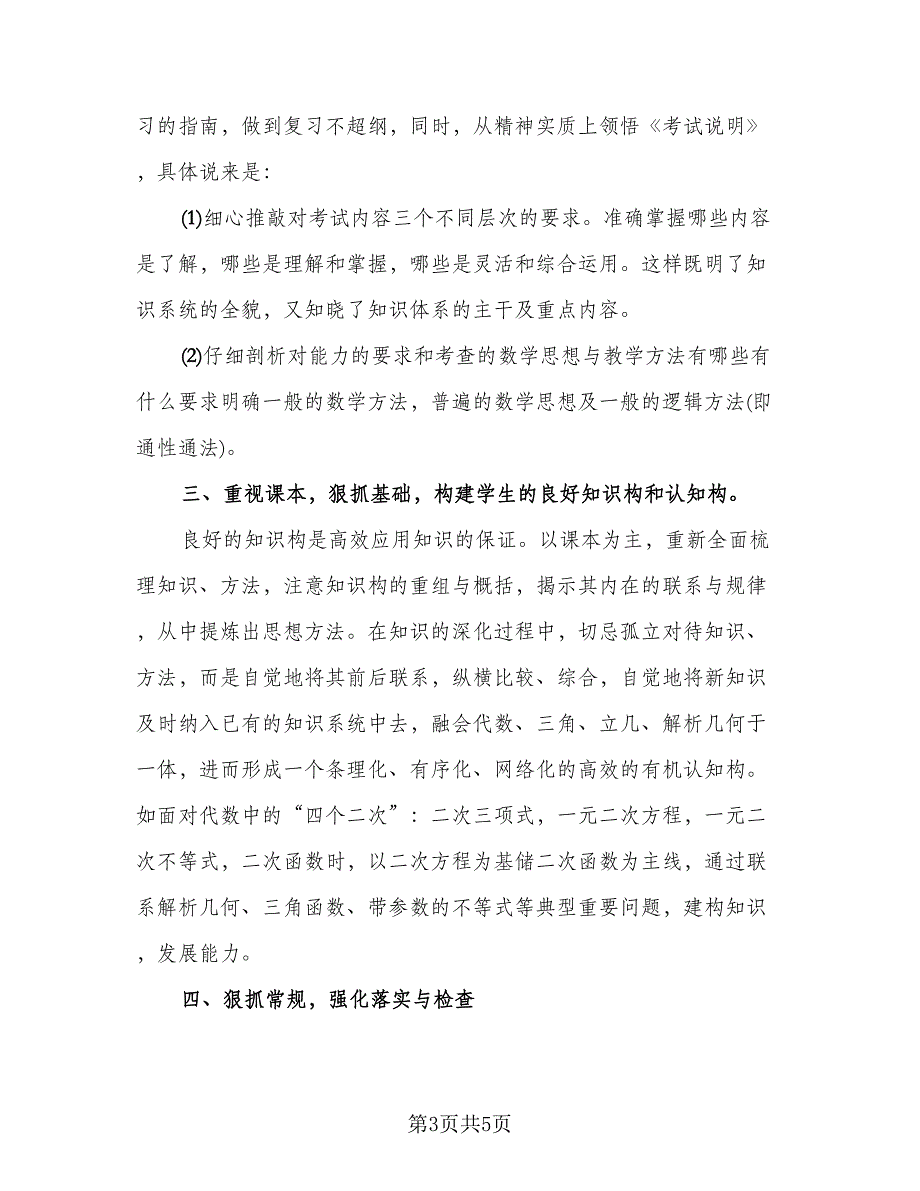 习的指南，做到复习不超纲，同时，从精神实质上领悟《考试说明》
，具体说来是：
⑴细心推敲对考试内容三个不同层次的要求。准确掌握哪些内容
是了解，哪些是理解和掌握，哪些是灵活和综合运用。这样既明了知
识系统的全貌，又知晓了知识体系的主干及重点内容。
⑵仔细剖析对能力的要求和考查的数学思想与教学方法有哪些有
什么要求明确一般的数学方法，普遍的数学思想及一般的逻辑方法(即
通性通法)。
三、重视课本，狠抓基础，构建学生的良好知识构和认知构。
良好的知识构是高效应用知识的保证。以课本为主，重新全面梳
理知识、方法，注意知识构的重组与概括，揭示其内在的联系与规律
，从中提炼出思想方法。在知识的深化过程中，切忌孤立对待知识、
方法，而是自觉地将其前后联系，纵横比较、综合，自觉地将新知识
及时纳入已有的知识系统中去，融会代数、三角、立几、解析几何于
一体，进而形成一个条理化、有序化、网络化的高效的有机认知构。
如面对代数中的“四个二次”：二次三项式，一元二次方程，一元二
次不等式，二次函数时，以二次方程为基储二次函数为主线，通过联
系解析几何、三角函数、带参数的不等式等典型重要问题，建构知识
，发展能力。
四、狠抓常规，强化落实与检查
第3页共5页